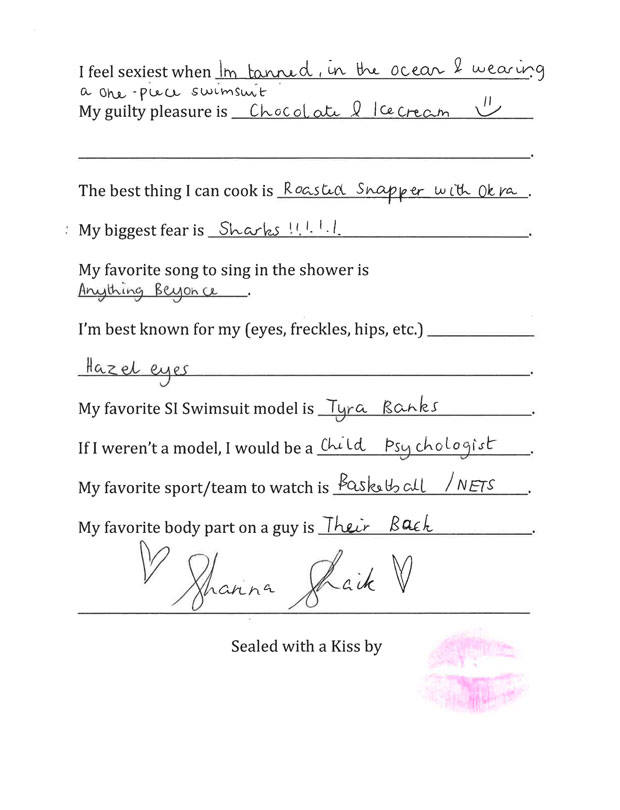 I feel sexiest when Im tanned, in the ocean & wearing
a one-piece swimsuit
My guilty pleasure is Chocolate & Icecream
.
The best thing I can cook is Roasted Snapper with Okra.
: My biggest fear is Sharks !!!.!.!.
My favorite song to sing in the shower is
Anything Beyonce.
I'm best known for my (eyes, freckles, hips, etc.)
Hazel eyes.
My favorite SI Swimsuit model is Tyra Banks.
If I weren't a model, I would be a Child Psychologist.
My favorite sport/team to watch is Basketball /NETS.
My favorite body part on a guy is Their Back.
Shanina Shaik
Sealed with a Kiss by